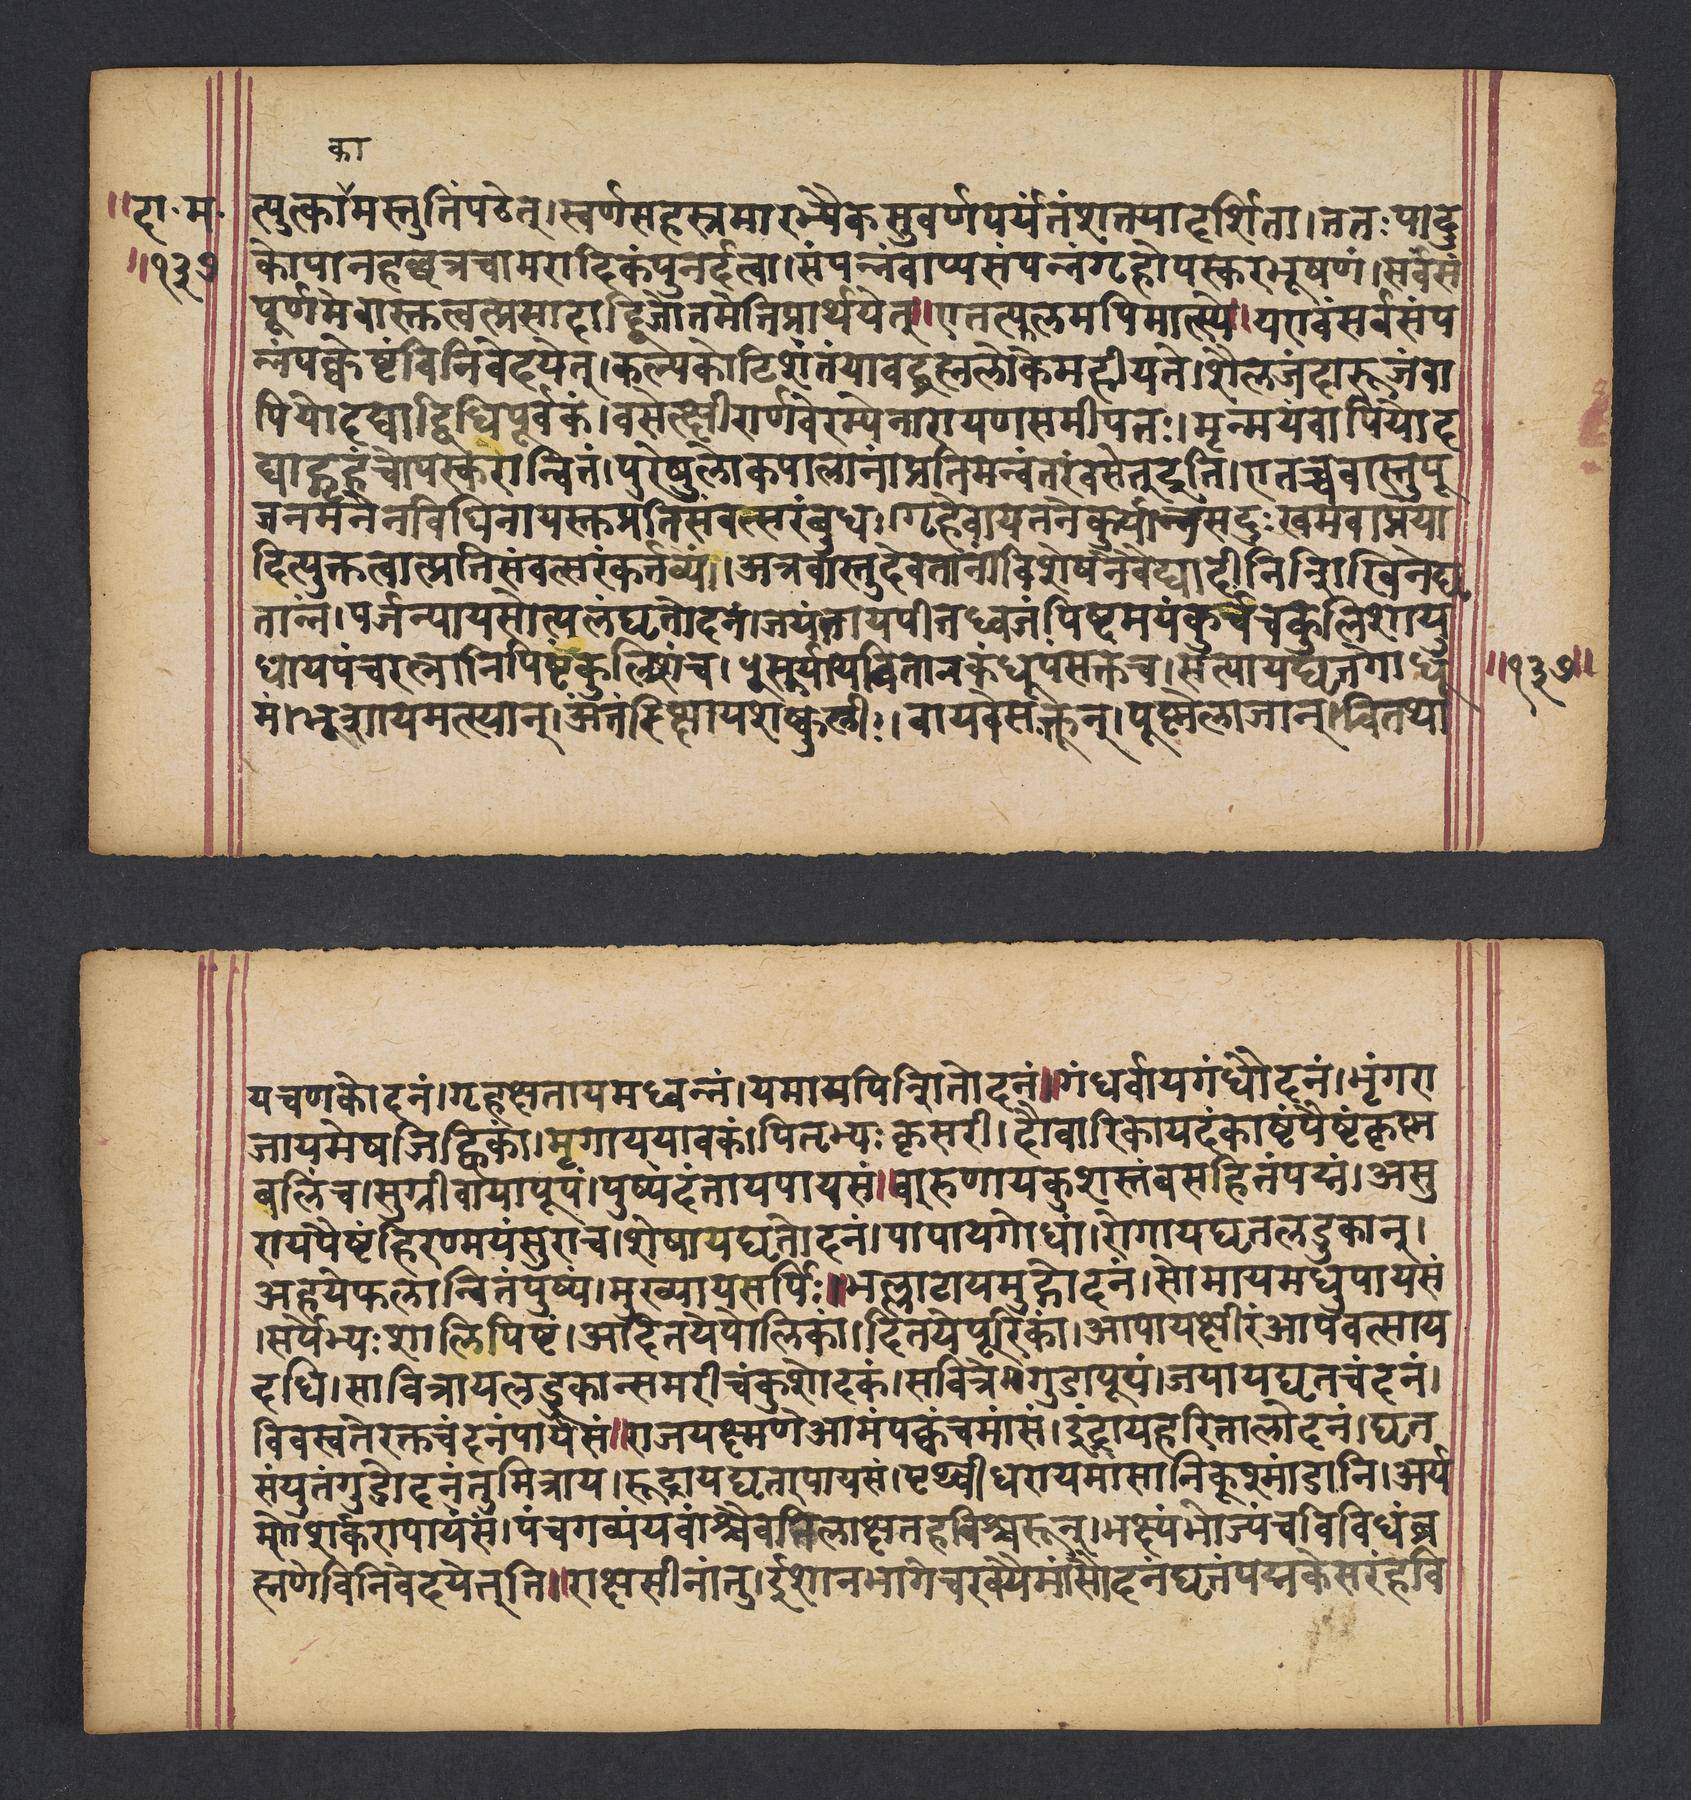 का
॥दा·म·
॥१३७
त्युत्कामस्तुतिंपठेत्।स्वर्णसहस्रमारभ्यैकसुवर्णपर्यंतंशतयादर्शिता।ततःपादु
कोपानहछत्रचामरादिकंपुनर्दत्वा।संपन्नंवाप्यसंपन्नंगृहोपस्करभूषणं।सर्वसं
पूर्णमेवास्तुत्वत्प्रसादाद्द्विजोत्तमेतिप्रार्थयेत्॥एतत्फलमपिमात्स्ये॥यएवंसर्वसंप
न्नंपक्वेष्टंविनिवेदयेत्।कल्पकोटिशतंयावद्ब्रह्मलोकेमहीयते।शैलजंदारुजंवा
पियोदद्याद्विधिपूर्वकं।वसेत्क्षीरार्णवेरम्येनारायणसमीपतः।मृन्मयंवापियोद
द्याद्गृहंचोपस्करान्वितं।पुरेषुलोकपालानांप्रतिमन्वंतरंवसेत्इति।एतच्चवास्तुपू
जनमनेनविधिनायस्तुप्रतिसंवत्सरंबुधः।गृहेवायतनेकुर्यान्नसदुःखमवाप्नुया
दित्युक्तत्वात्प्रतिसंवत्सरंकर्तव्यं।अत्रवास्तुदेवतानांविशेषनैवेद्यादीनिशिखिनेघृ
तान्नं।पर्जन्यायसोत्पलंघृतौदनं।जयंतायपीतध्वजंपिष्टमयंकुर्मंचकुलिशायु
धायपंचरत्नानिपिष्टंकुलिशंच।सूर्यायवितानकंधूपंसक्तंच।सत्यायघृतगोधू
मं।भृशायमत्स्यान्।अंतरिक्षायशष्कुलीः।वायवेसक्तून्।पूष्णेलाजान्।वितथा
॥१३७॥
यचणकौदनं।गृहक्षतायमध्वन्नं।यमायपिशितौदनं॥गंधर्वायगंधौदनं।भृंगरा
जायमेषजिह्विकां।मृगाययावकं।पितृभ्यःकृसरां।दौवारिकायदंतकाष्टंपैष्टंकृष्ण
बलिंच।सुग्रीवायापूपं।पुष्पदंतायपायसं॥वारुणायकुशस्तंबसहितंपद्मं।असु
रायपैष्टंहिरण्मयंसुरांच।शेषायघृतौदनं।पापायगोधां।रोगायघृतलडुकान्।
अहयेफलान्वितंपुष्पं।मुख्यायसर्पिः॥भल्लाटायमुद्गौदनं।सोमायमधुपायसं
।सर्पेभ्यःशालिपिष्टं।अदितयेपोलिकां।दितयेपूरिकां।आपायक्षीरंआपवत्साय
दधि।सावित्रायलडुकान्समरीचंकुशोदकं।सवित्रेगुडापूपं।जयायघृतचंदनं।
विवस्वतेरक्तचंदनंपायसं॥राजयक्ष्मणेआमंपक्वंचमांसं।इंद्रायहरितालौदनं।घृत
संयुतंगुडौदनंतुमित्राय।रूद्रायघृतपायसं।पृथ्वीधरायमांसानिकूश्मांडानि।अर्य
म्णेशर्करापायसं।पंचगव्यंयवांश्चैवतिलाक्षतहविश्चरून्।भक्ष्यंभोज्यंचविविधंब्र
ह्मणेविनिवेदयेत्इति॥राक्षसीनांतु।ईशानभागेचरक्यैमांसौदनंघृतंपद्मकेसरंहवि